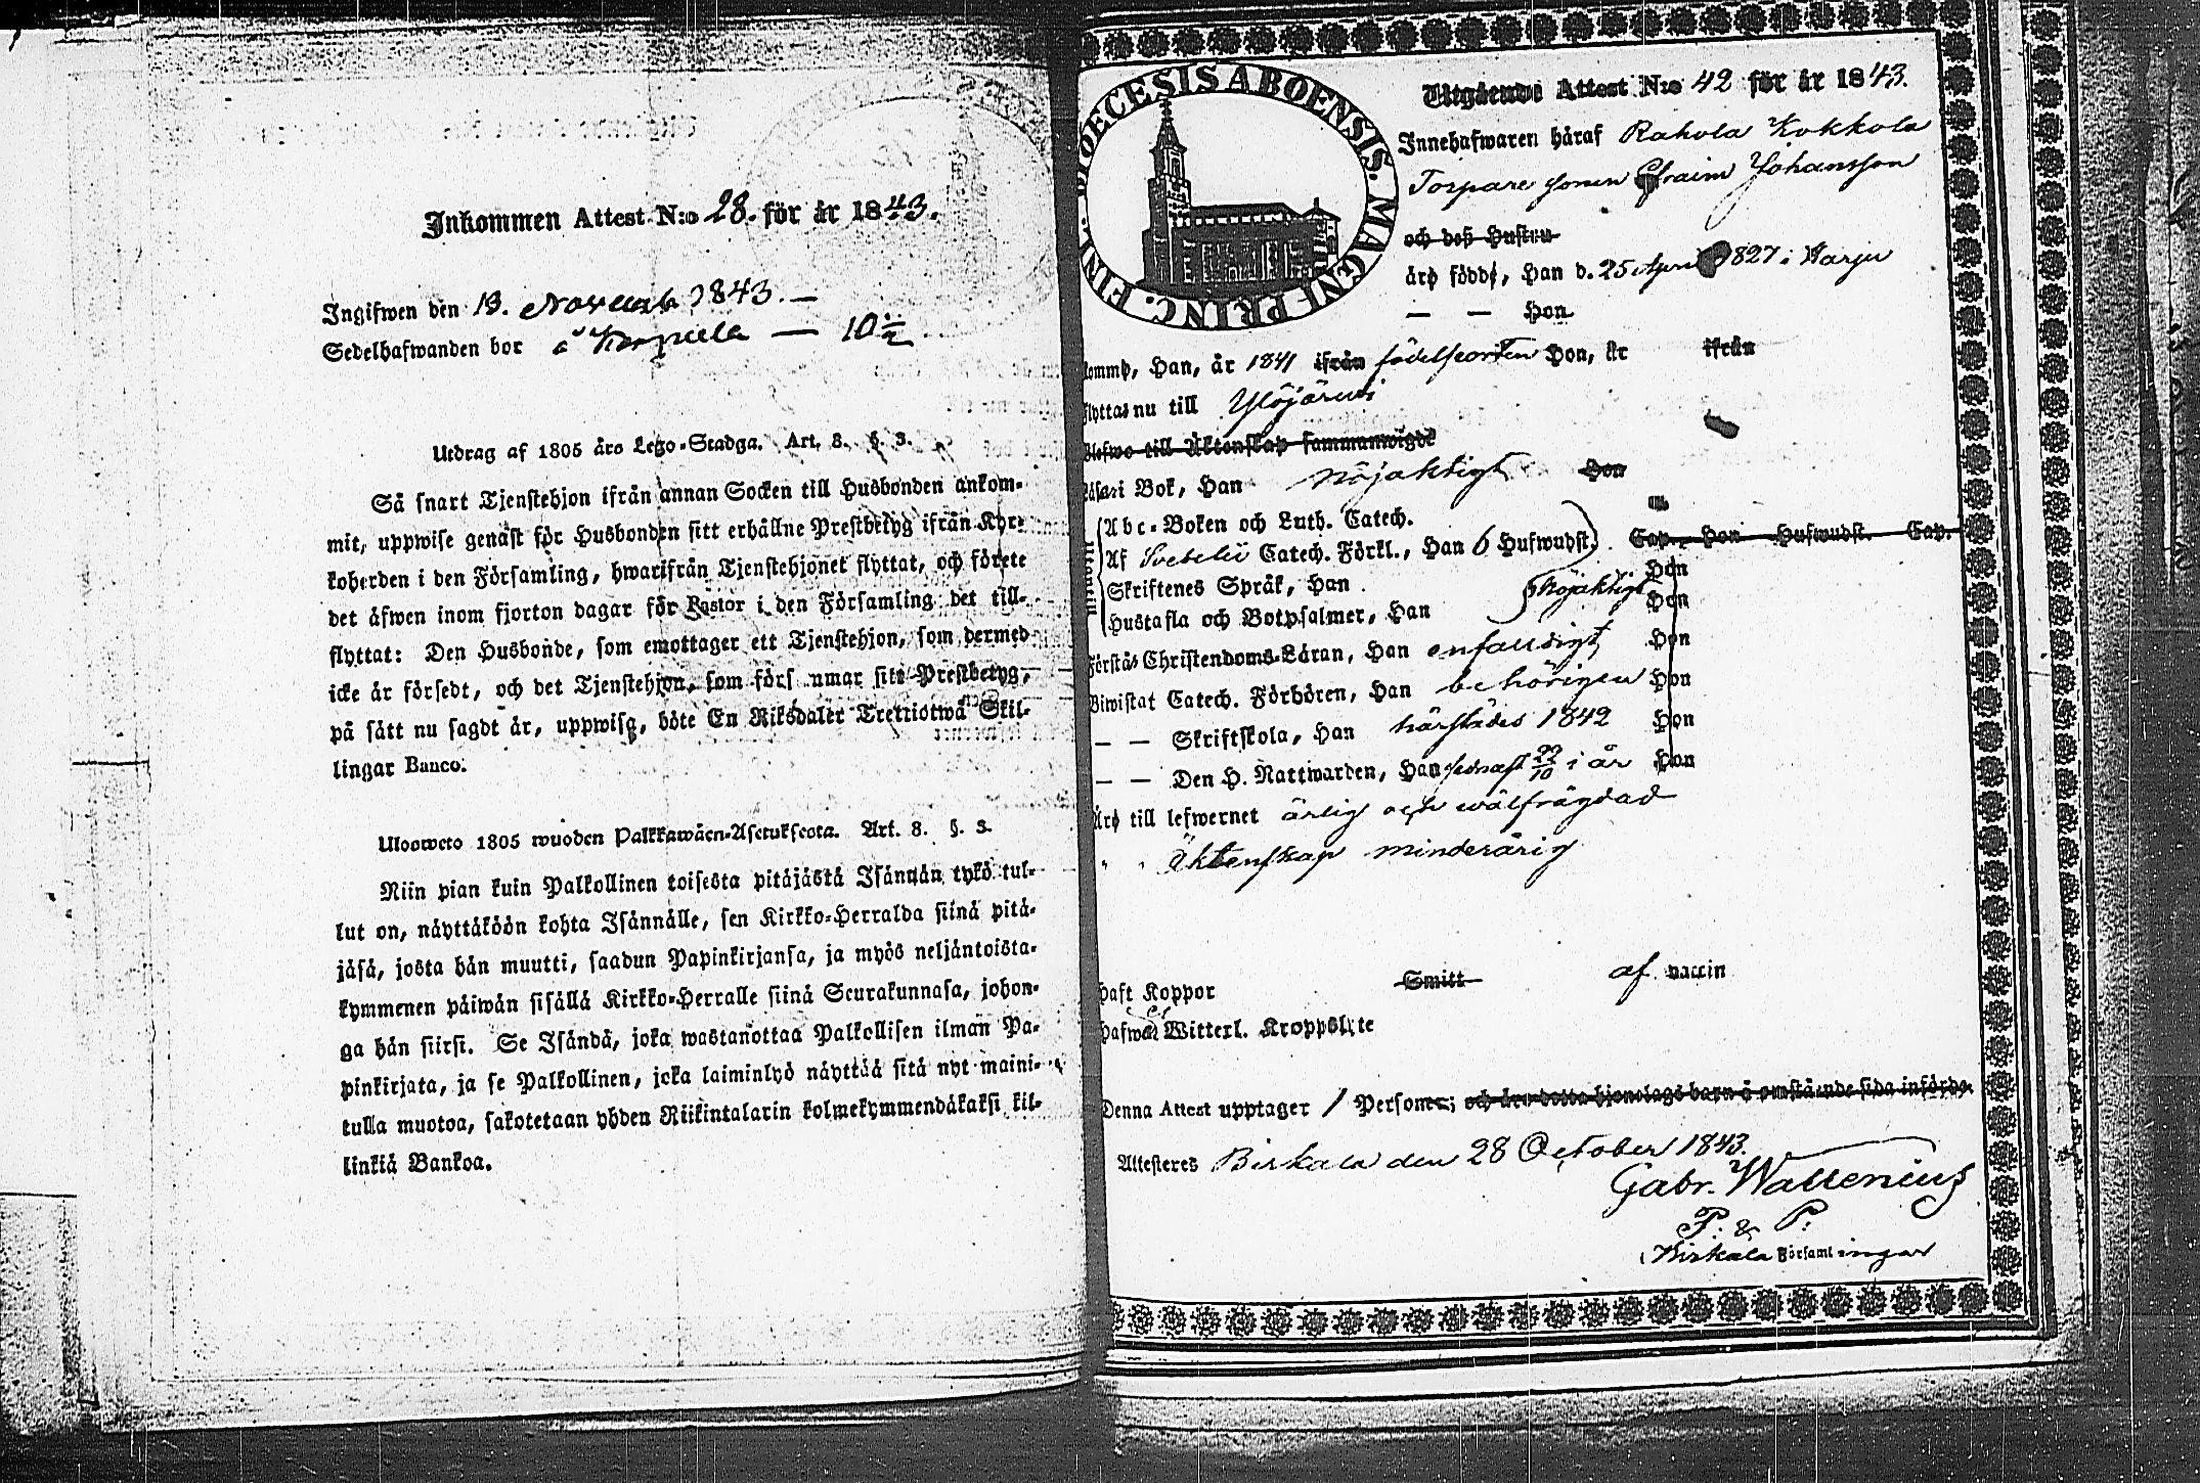 Inkommen Attest N:o 28. för år 1843.
Ingifwen den 13. Novemb 1843. —
Sedelhafwanden bor å — 10 ½
Utdrag af 1805 års Lego-Stadga. Art. 8. §. 3.
Så snart Tjenstehjon ifrån annan Socken till Husbonden ankom-
mit, uppwise genast för Husbonden sitt erhållne Prestbetyg ifrån Kyr-
koherden i den Församling, hwarifrån Tjenstehjonet flyttat, och förete
det äfwen inom fjorton dagar för Pastor i den Församling det till-
flyttat: Den Husbonde, som emottager ett Tjenstehjon, som dermed
icke är försedt, och det Tjenstehjon, som förs ummar sitt Prestbetyg,
på sätt nu sagdt är, uppwisa, böte En Riksdaler Trettiotwå Skil-
lingar Banco.
Ulosweto 1805 wuoden Palkkawäen-Asetuksesta. Art. 8. §. 3.
Niin pian kuin Palkollinen toisesta pitäjästä Isännän tykö tul-
lut on, näyttäköön kohta Isännälle, sen Kirkko-Herralda siinä pitä-
jäsä, josta hän muutti, saadun Papinkirjansa, ja myös neljäntoista-
kymmenen päiwän sisällä Kirkko-Herralle siinä Seurakunnasa, johon-
ga hän siirsi. Se Isändä, joka wastanottaa Palkollisen ilman Pa-
pinkirjata, ja se Palkollinen, joka laiminlyö näyttää sitä nyt maini-
tulla muotoa, sakotetaan yhden Riikintalarin kolmekymmendäkaksi kil-
linkiä Bankoa.
DIOECESIS ABOENSIS. MAGNI PRINC. FINL.
Utgående Attest N:o 42 för år 1843.
Innehafwaren häraf Rahola Kokkola
Torpare sonen Efraim Johansson
och dess Hustru
äro födde, Han d. 25 April 1827 i Harju
— — Hon
kommo, Han, år 1841 ifrån födelseorten Hon, år ifrån
flyttas nu till Ylöjärwi
Blefwo till Äktenskap sammanwigde
Läsa i Bok, Han nöjaktigt Hon
Abc-Boken och Luth. Catech.
Af Svebelii Catech. Förkl., Han 6 Hufwudst. Cap. Hon Hufwudst. Cap.
Skriftenes Språk, Han Hon
Hustafla och Botpsalmer, Han nöjaktigt Hon
Utantill
Förstås Christendoms-Läran, Han enfaldigt Hon
Biwistat Catech. Förhören, Han behörigen Hon
— — Skriftskola, Han härstädes 1842 Hon
— — Den H. Nattwarden, Han sednast 22/10 i år Hon
Äro till lefwernet ärlig och wälfrägdad
" " Äktenskap minderårig
Haft Koppor Smitt af vaccin
Hafwa Witterl. Kroppslyte
Denna Attest upptager 1 Person; och äro detta hjonelags barn å omstående sida införde.
Attesteras Birkala den 28 October 1843.
Gabr. Wallenius
P. & P.
Birkala Församlingar